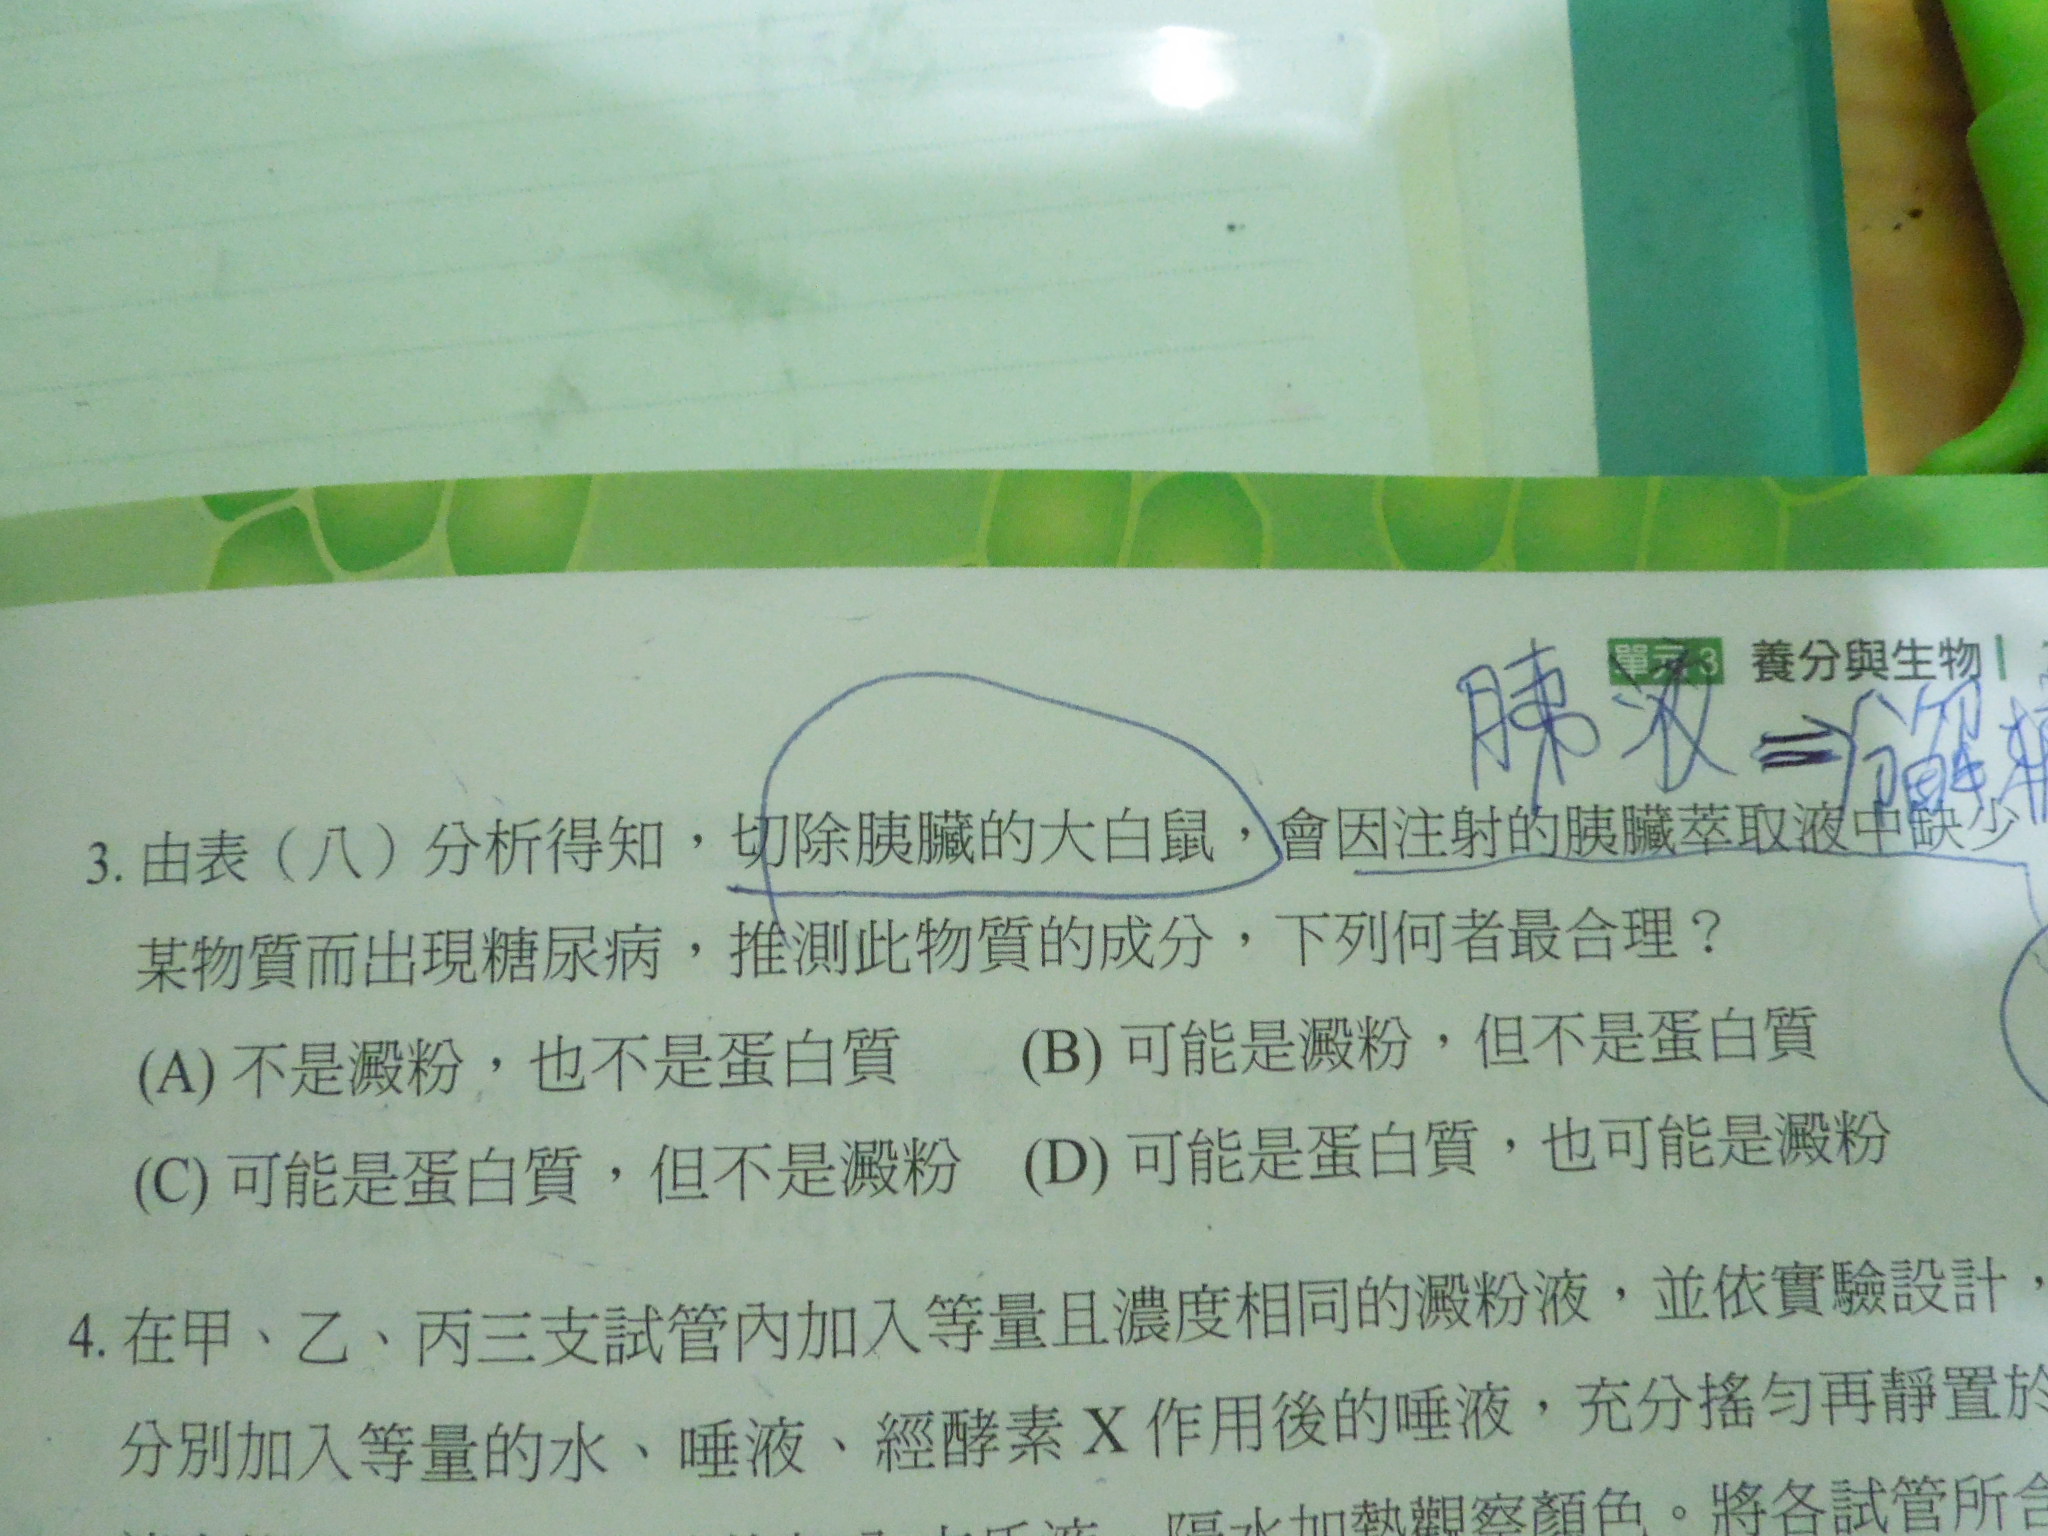 單元3 養分與生物
胰液⇒分解
3. 由表（八）分析得知，切除胰臟的大白鼠，會因注射的胰臟萃取液中缺少
某物質而出現糖尿病，推測此物質的成分，下列何者最合理？
(A) 不是澱粉，也不是蛋白質 (B) 可能是澱粉，但不是蛋白質
(C) 可能是蛋白質，但不是澱粉 (D) 可能是蛋白質，也可能是澱粉
4. 在甲、乙、丙三支試管內加入等量且濃度相同的澱粉液，並依實驗設計，
分別加入等量的水、唾液、經酵素 X 作用後的唾液，充分搖勻再靜置於
隔水加熱觀察顏色。將各試管所含